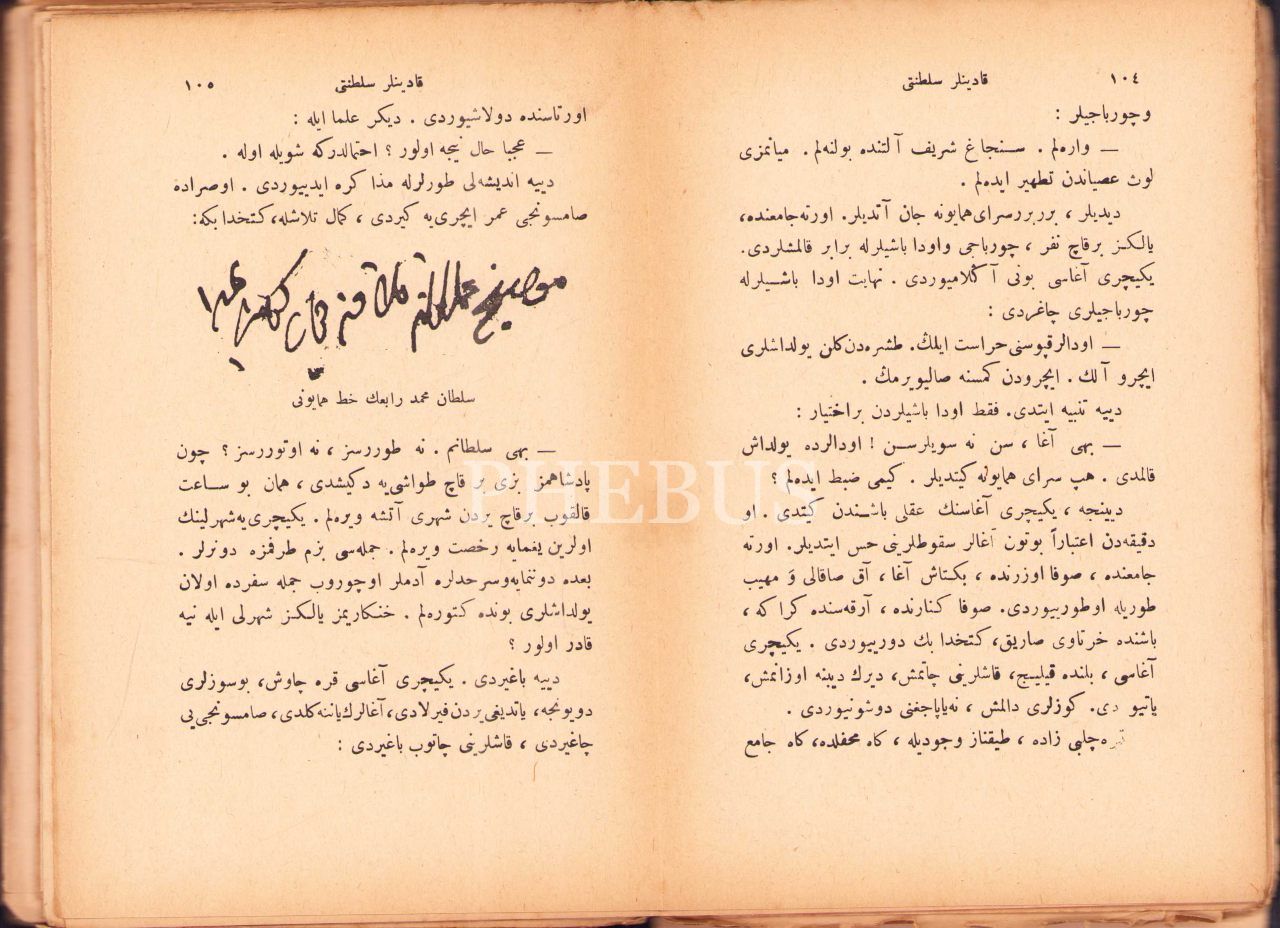 ١٠٤
قادینلر سلطنتی
وچورباجیلر :
— واره‌لم . سنجاغ شریف آلتنده بولنه‌لم . میانمزی
لوث عصیاندن تطهیر ایده‌لم .
دیدیلر ، بررر سرای همایونه جان آتدیلر. اورته‌جامعنده،
یالکز برقاچ نفر ، چورباجی واودا باشیلرله برابر قالمشلردی.
یکیچری آغاسی بونی آکلامیوردی . نهایت اودا باشیلرله
چورباجیلری چاغردی :
— اودالرقپوسنی حراست ایلك. طشره‌دن کلن یولداشلری
ایچرو آلك . ایچرودن کمسنه صالیویرمك .
دییه تنبیه ایتدی. فقط اودا باشیلردن براختیار :
— بهی آغا ، سن نه سویلرسن ! اودالرده یولداش
قالمدی . هپ سرای همایونه کیتدیلر . کیمی ضبط ایده‌لم ؟
دیینجه ، یکیچری آغاسنك عقلی باشندن کیتدی . او
دقیقه‌دن اعتباراً بوتون آغالر سقوطلرینی حس ایتدیلر. اورته
جامعنده ، صوفا اوزرنده ، بکتاش آغا ، آق صاقالی وَ مهیب
طوریله اوطوریوردی. صوفا کنارنده ، آرقه‌سنده کراکه ،
باشنده خرتاوی صاریق، کتخدا بك دوریوردی . یکیچری
آغاسی ، بلنده قیلیج، قاشلرینی چاتمش، دیرك دیبنه اوزانمش،
یاتیو دی. کوزلری دالمش ، نه‌یاپاجغنی دوشونیوردی .
قره‌چلبی زاده ، طیقناز وجودیله ، کاه محفلده، کاه جامع
١٠٥
قادینلر سلطنتی
اورتاسنده دولاشیوردی . دیکر علما ایله :
— عجبا حال نیجه اولور ؟ احتمالدرکه شویله اوله .
دییه اندیشه‌لی طورلرله مذاکره ایدییوردی . اوصراده
صامسونجی عمر ایچری‌یه کیردی ، کمال تلاشله، کتخدا بکه:
سلطان محمد رابعك خط همایونی
— بهی سلطانم . نه طوررسز ، نه اوتوررسز ؟ چون
پادشاهمز بزی بر قاچ طواشی‌یه دکیشدی ، همان بو ساعت
قالقوب برقاچ یردن شهری آتشه ویره‌لم . یکیچری‌یه شهرلینك
اولرین یغمایه رخصت ویره‌لم . جمله‌سی بزم طرفمزه دونرلر .
بعده دوننمایه‌وسرحدلره آدملر اوچوروب جمله سفرده اولان
یولداشلری بونده کتوره‌لم . خنکاریمز یالکز شهرلی ایله نیه
قادر اولور ؟
دییه باغیردی . یکیچری آغاسی قره چاوش، بوسوزلری
دویونجه، یاتدیغی یردن فیرلادی، آغالرك یاننه کلدی، صامسونجی‌یی
چاغیردی ، قاشلرینی چاتوب باغیردی :
PHEBUS